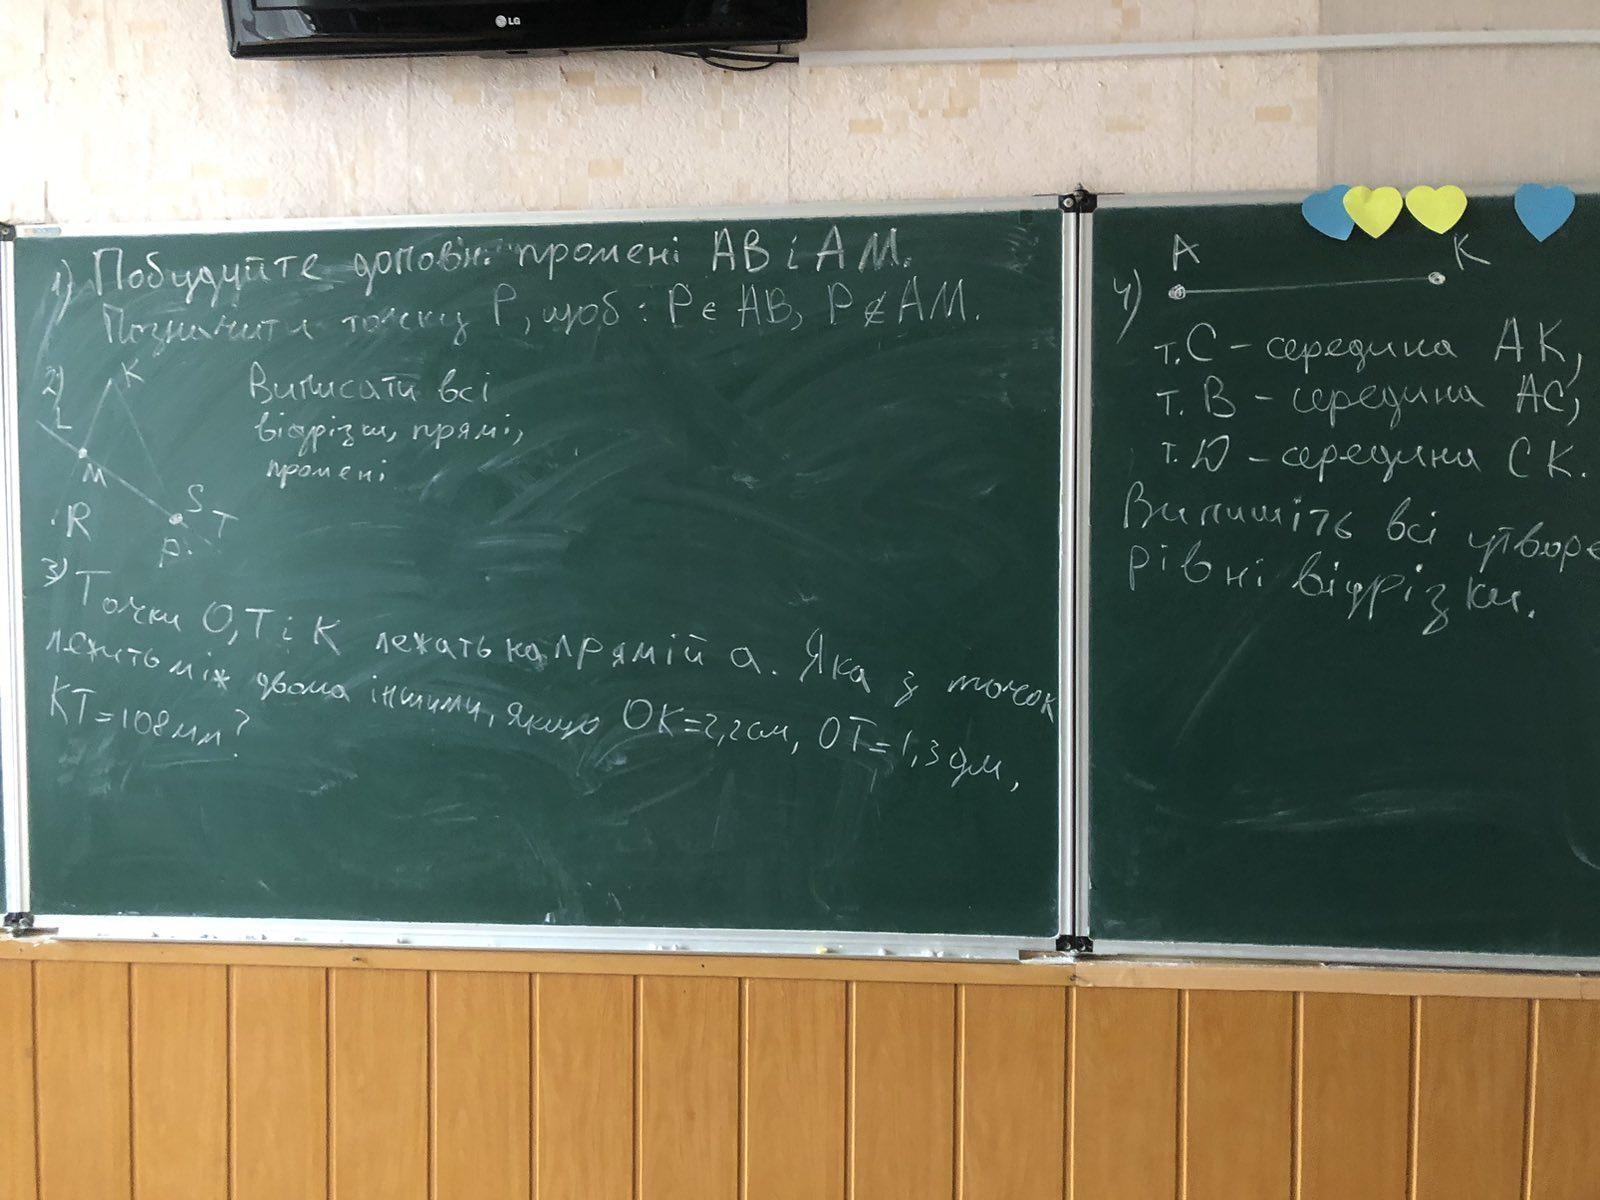 LG
1) Побудуйте доповн. промені AB і AM.
Позначити точку P, щоб: P ∈ AB, P ∉ AM.
2)
K
L
M
R
S
T
P
Виписати всі
відрізки, прямі,
промені.
3) Точки O, T і K лежать на прямій a. Яка з точок
лежить між двома іншими, якщо OK=2,2см, OT=1,3дм,
KT=108мм?
A
K
4)
т. C - середина AK,
т. B - середина AC,
т. D - середина CK.
Випишіть всі утворе
рівні відрізки.